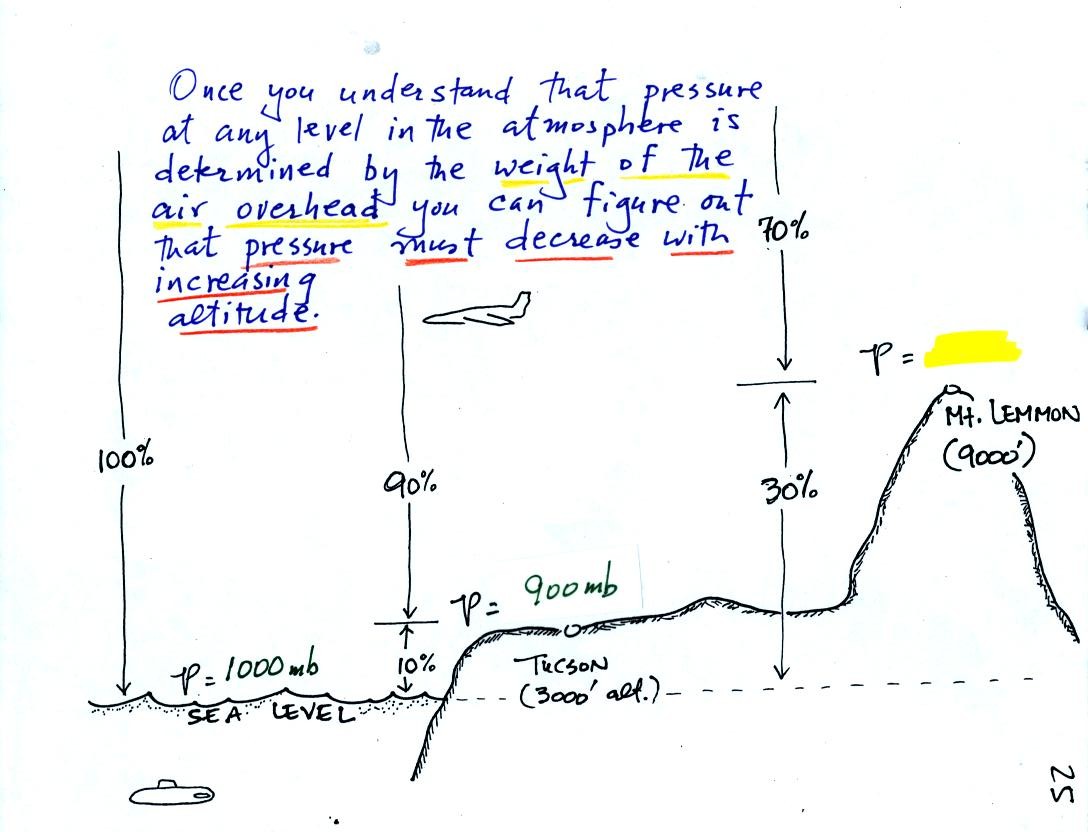 Once you understand that pressure
at any level in the atmosphere is
determined by the weight of the
air overhead you can figure out
that pressure must decrease with
increasing
altitude.
70%
P =
Mt. LEMMON
(9000')
100%
90%
30%
P = 900 mb
P = 1000 mb
10%
TUCSON
(3000' alt.)
SEA LEVEL
25